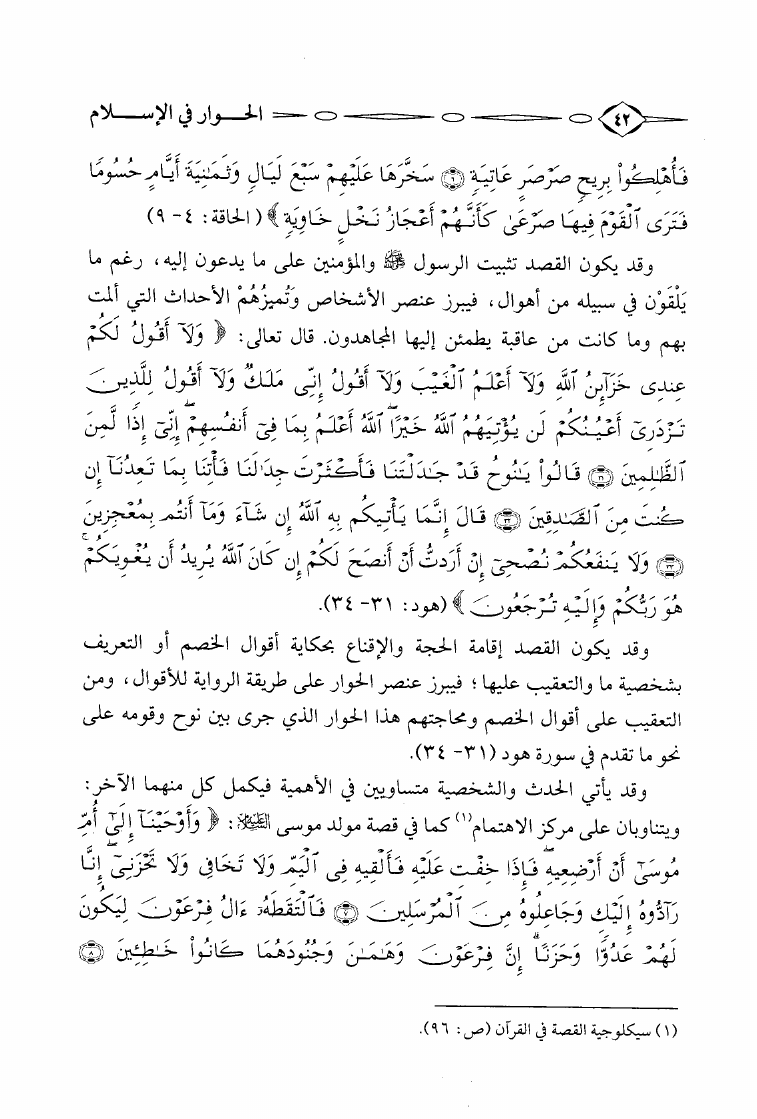 ٤٢ الحـــوار في الإســـلام
فَأُهْلِكُوا۟ بِرِيحٍ صَرْصَرٍ عَاتِيَةٍ ۝٦ سَخَّرَهَا عَلَيْهِمْ سَبْعَ لَيَالٍ وَثَمَـٰنِيَةَ أَيَّامٍ حُسُومًا
فَتَرَى ٱلْقَوْمَ فِيهَا صَرْعَىٰ كَأَنَّهُمْ أَعْجَازُ نَخْلٍ خَاوِيَةٍ ﴾ (الحاقة: ٤- ٩)
وقد يكون القصد تثبيت الرسول ﷺ والمؤمنين على ما يدعون إليه، رغم ما
يَلْقَوْن في سبيله من أهوال، فيبرز عنصر الأشخاص وتُميزُهُمْ الأحداث التي ألمت
بهم وما كانت من عاقبة يطمئن إليها المجاهدون. قال تعالى: ﴿ وَلَآ أَقُولُ لَكُمْ
عِندِى خَزَآئِنُ ٱللَّهِ وَلَآ أَعْلَمُ ٱلْغَيْبَ وَلَآ أَقُولُ إِنِّى مَلَكٌ وَلَآ أَقُولُ لِلَّذِينَ
تَزْدَرِىٓ أَعْيُنُكُمْ لَن يُؤْتِيَهُمُ ٱللَّهُ خَيْرًا ۖ ٱللَّهُ أَعْلَمُ بِمَا فِىٓ أَنفُسِهِمْ ۖ إِنِّىٓ إِذًا لَّمِنَ
ٱلظَّـٰلِمِينَ ۝٣١ قَالُوا۟ يَـٰنُوحُ قَدْ جَـٰدَلْتَنَا فَأَكْثَرْتَ جِدَٰلَنَا فَأْتِنَا بِمَا تَعِدُنَآ إِن
كُنتَ مِنَ ٱلصَّـٰدِقِينَ ۝٣٢ قَالَ إِنَّمَا يَأْتِيكُم بِهِ ٱللَّهُ إِن شَآءَ وَمَآ أَنتُم بِمُعْجِزِينَ
۝٣٣ وَلَا يَنفَعُكُمْ نُصْحِىٓ إِنْ أَرَدتُّ أَنْ أَنصَحَ لَكُمْ إِن كَانَ ٱللَّهُ يُرِيدُ أَن يُغْوِيَكُمْ ۚ
هُوَ رَبُّكُمْ وَإِلَيْهِ تُرْجَعُونَ ﴾ (هود: ٣١- ٣٤).
وقد يكون القصد إقامة الحجة والإقناع بحكاية أقوال الخصم أو التعريف
بشخصية ما والتعقيب عليها؛ فيبرز عنصر الحوار على طريقة الرواية للأقوال، ومن
التعقيب على أقوال الخصم ومحاجتهم هذا الحوار الذي جرى بين نوح وقومه على
نحو ما تقدم في سورة هود (٣١- ٣٤).
وقد يأتي الحدث والشخصية متساويين في الأهمية فيكمل كل منهما الآخر:
ويتناوبان على مركز الاهتمام(١) كما في قصة مولد موسى الْعَلَيْهِ السَّلَام: ﴿ وَأَوْحَيْنَآ إِلَىٰٓ أُمِّ
مُوسَىٰٓ أَنْ أَرْضِعِيهِ ۖ فَإِذَا خِفْتِ عَلَيْهِ فَأَلْقِيهِ فِى ٱلْيَمِّ وَلَا تَخَافِى وَلَا تَحْزَنِىٓ ۖ إِنَّا
رَآدُّوهُ إِلَيْكِ وَجَاعِلُوهُ مِنَ ٱلْمُرْسَلِينَ ۝٧ فَٱلْتَقَطَهُۥٓ ءَالُ فِرْعَوْنَ لِيَكُونَ
لَهُمْ عَدُوًّا وَحَزَنًا ۗ إِنَّ فِرْعَوْنَ وَهَـٰمَـٰنَ وَجُنُودَهُمَا كَانُوا۟ خَـٰطِـِٔينَ ۝٨
(١) سيكلوجية القصة في القرآن (ص: ٩٦).